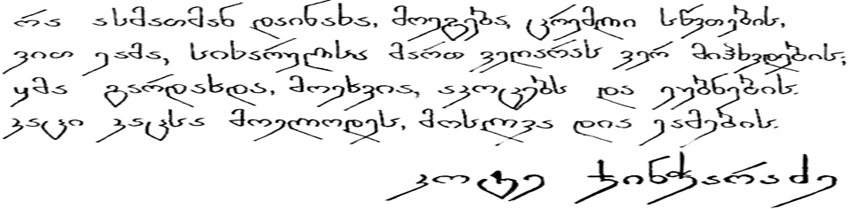 რა ასმათმან დაინახა, მოეგება, ცრემლი სწვთების,
ვით ეამა, სიხარულსა მართ ვეღარას ვერ მიჰხვდების;
ყმა გარდახდა, მოეხვია, აკოცებს და ეუბნების.
კაცი კაცსა მოელოდეს, მოსლვა დია ეამების.
კოტე ჯინჭარაძე